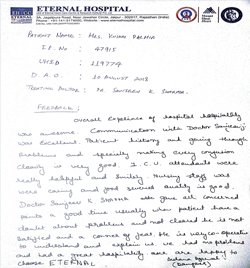 ETERNAL HOSPITAL
3A, Jagatpura Road, Near Jawahar Circle, Jaipur - 302017, Rajasthan (India)
PATIENT NAME : Mrs. KIRAN
I.P. No : 47915
UHID : 119774
D.O.A. : 10 AUGUST 2018
TREATING DOCTOR : DR. SANJEEV K. SHARMA
FEEDBACK :
Overall Experience of hospital hospitality
was awesome. Communication with Doctor Sanjeevji
was Excellent. Patient history and going through
Problems and specially making every confusion
clearing is very good. I.C.U. attendants were
really helpful and Smiley. Nursing staff was
were caring and food served quality is good.
Doctor Sanjeev K. SHARMA gave all concerned
points a good time usually when patient has a
doubt about problems and not cleared he is not
Satisfied and in corner of fear. He is very co-operative
to understand and explain us. We had no problems
and had a great hospitality and are happy to
choose ETERNAL